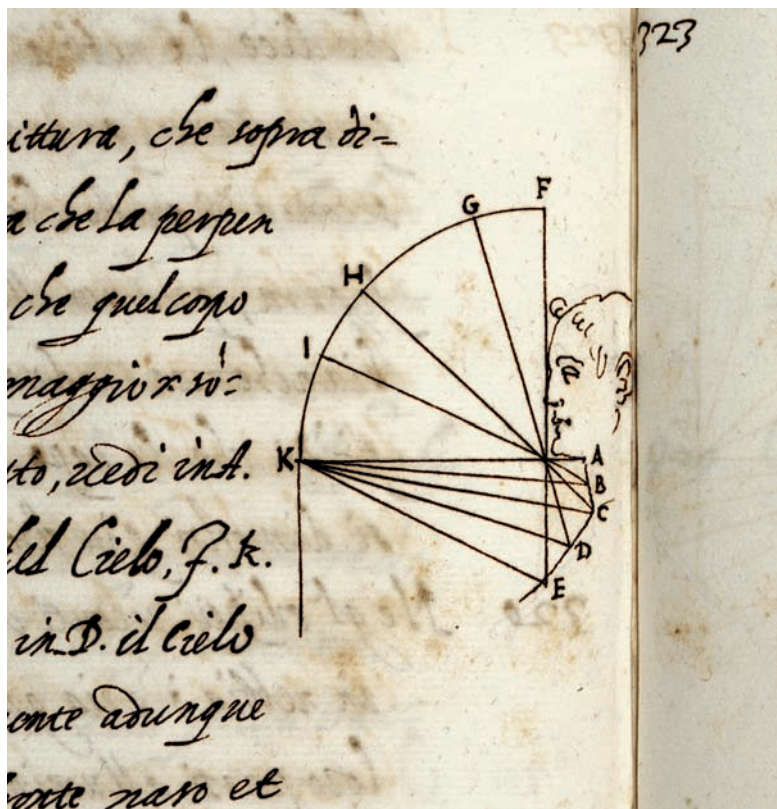 323
ittura, che sopra di=
a che la perpen
che quel corpo
maggior
to, vedi in A.
del Cielo, F. K.
in D. il Cielo
onte adunque
fronte naso et
F
G
H
I
K
A
B
C
D
E